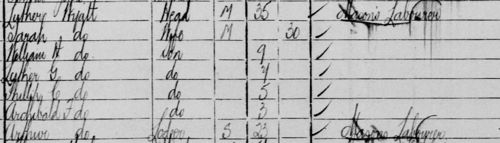 Luther Wyatt Head M 35 Masons Labourer
Sarah do Wife M 30
William H do son 9
Luther G do do 7
Philip C do do 5
Archibald F do do 3
Arthur do Lodger S 23 Masons Labourer